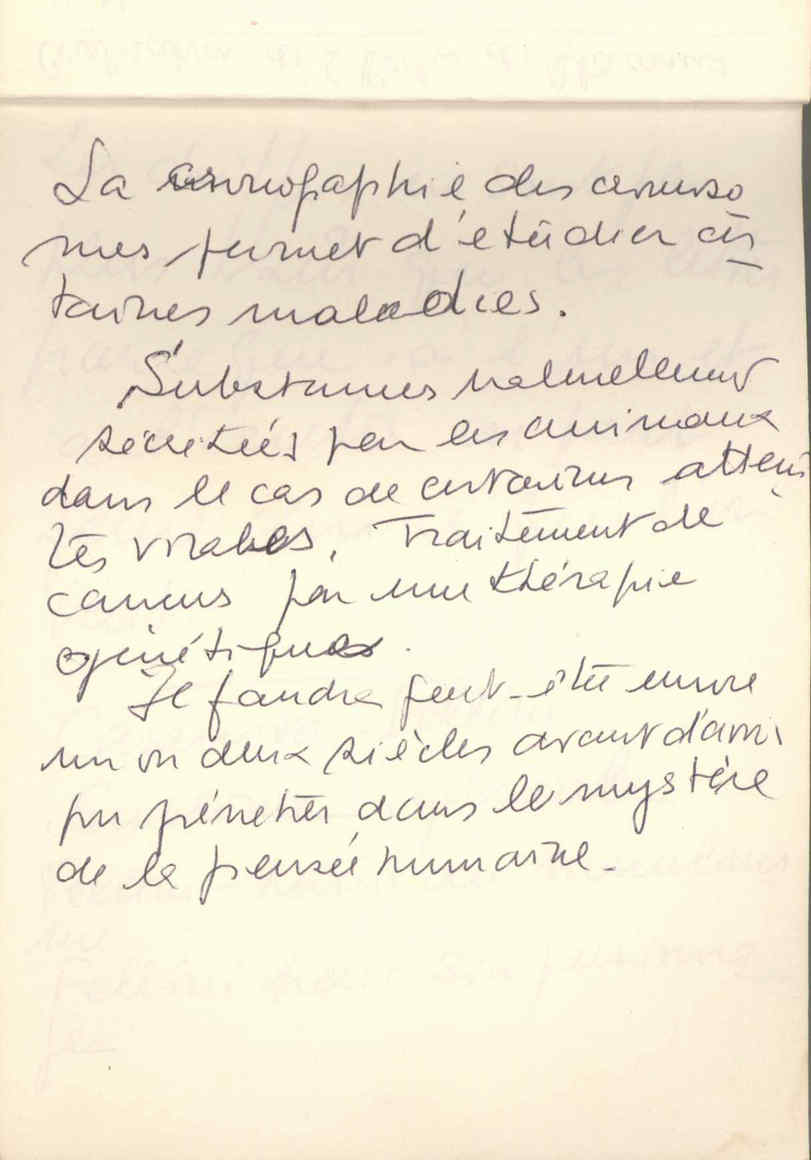 La des
mes permet d'étudier cer
taines maladies.
Substances naturellement
sécrétées par les animaux
dans le cas de certaines attein
tes virales. Traitement de
cancers par une thérapie
génétique.
Il faudra peut-être encore
un ou deux siècles avant d'avoi
pu pénétrer dans le mystère
de la pensée humaine.